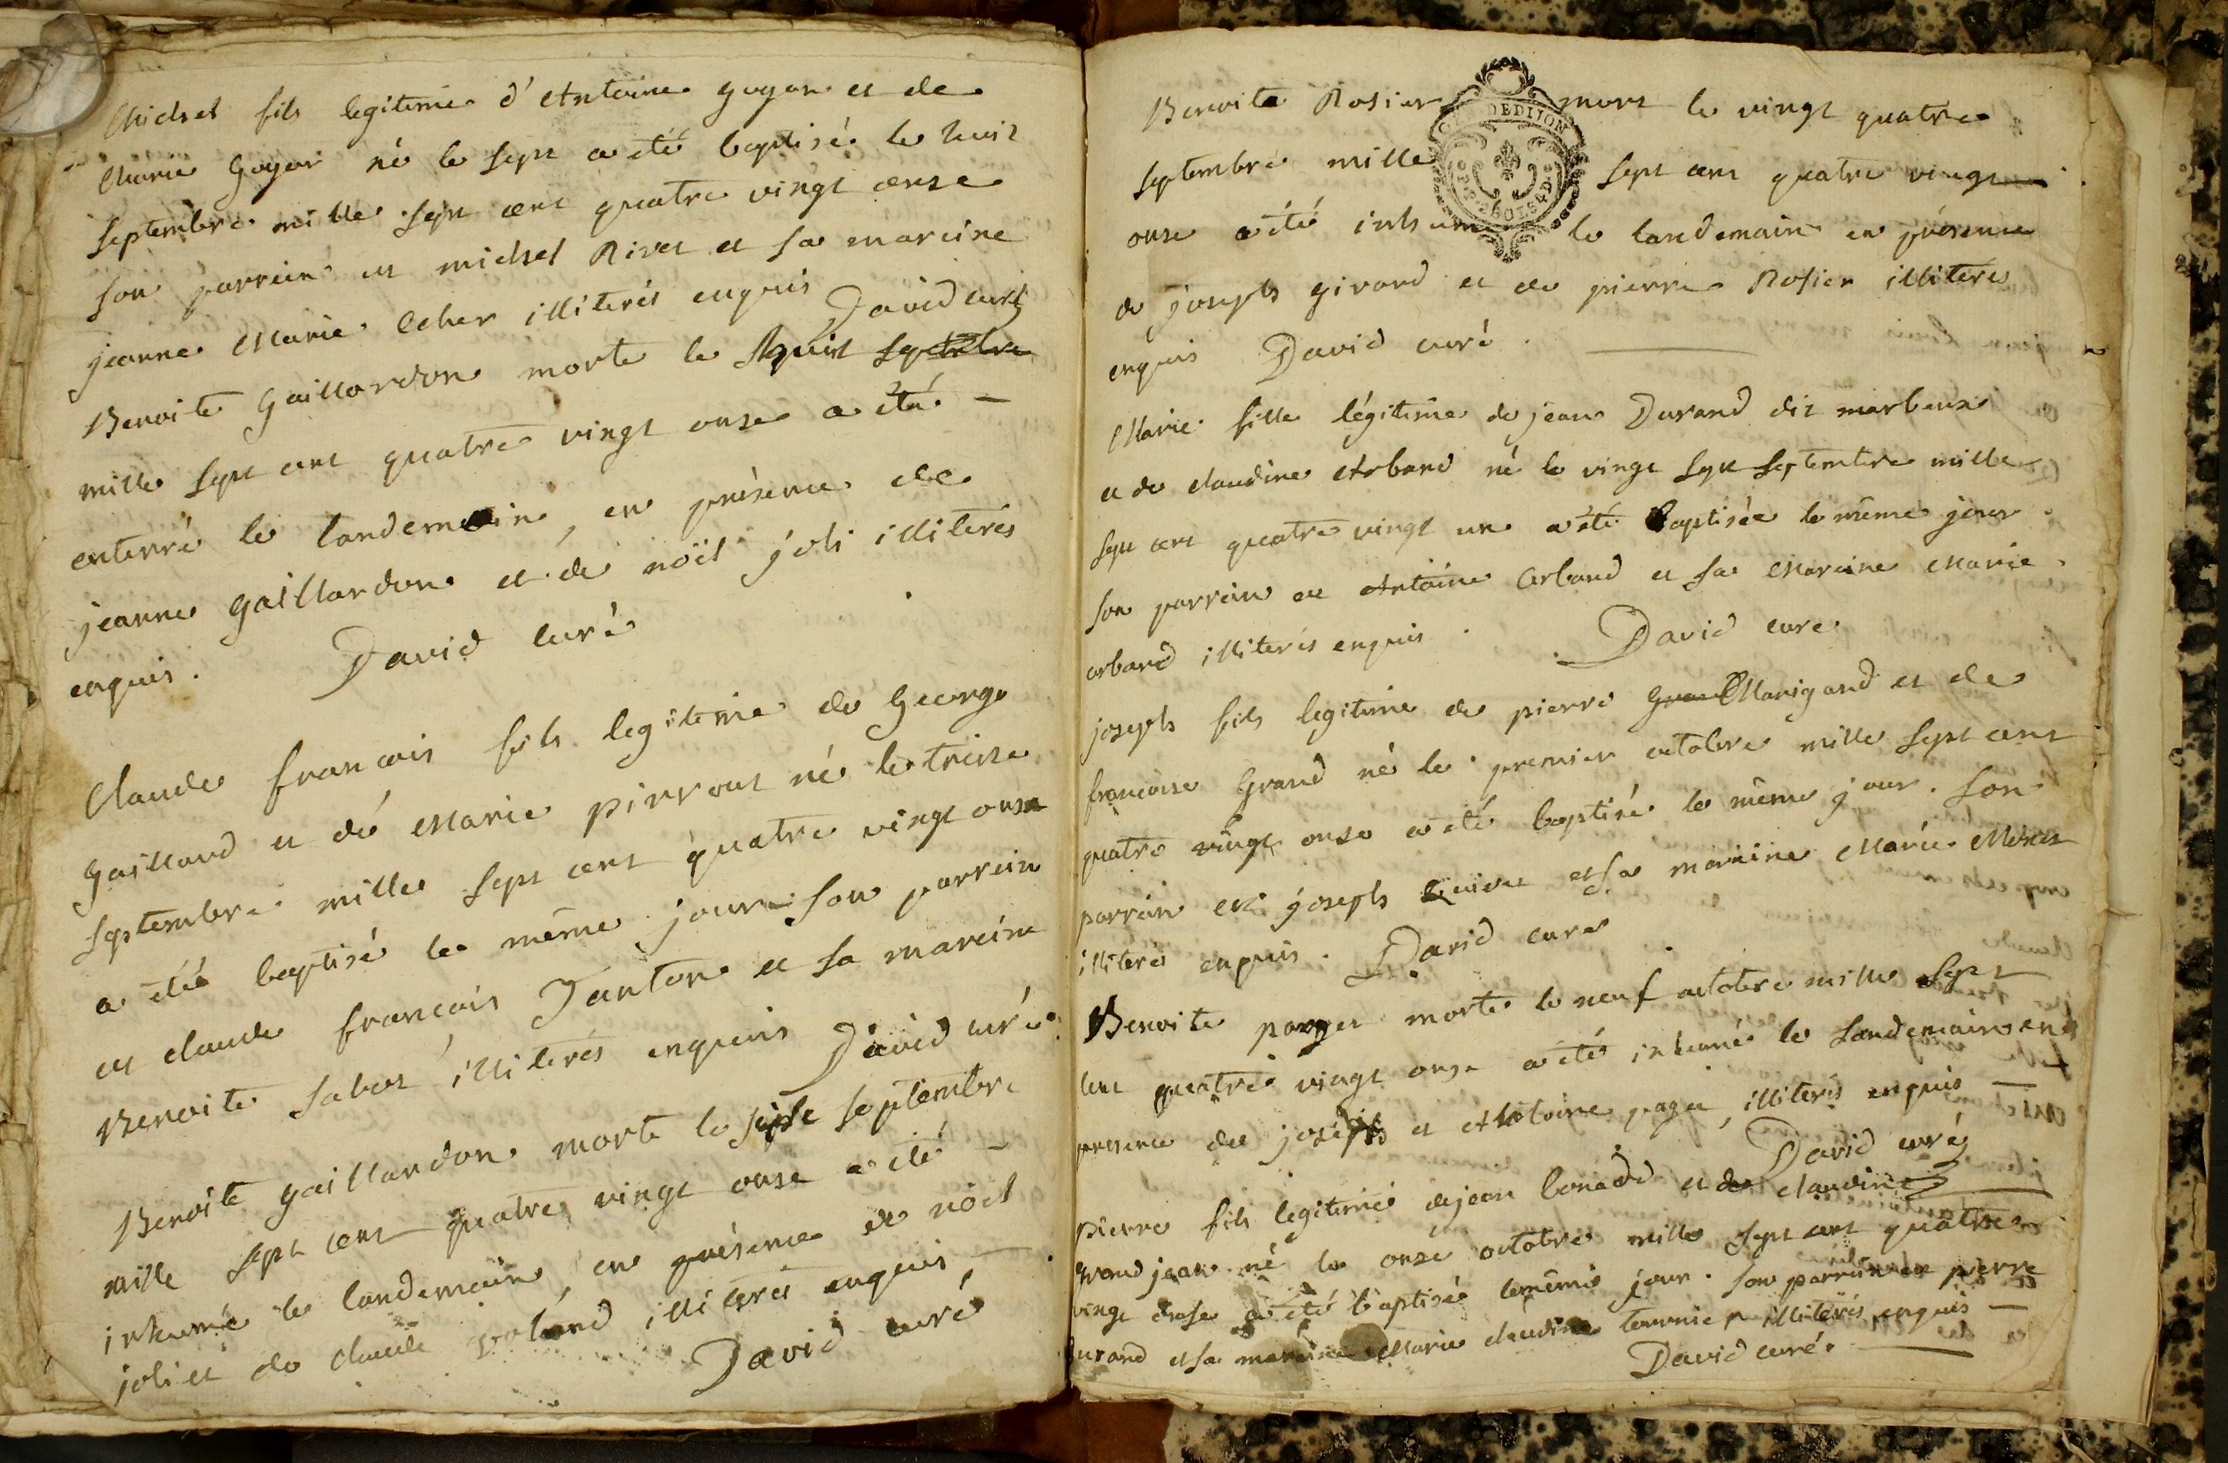 Michel fils legitime d'Antoine goyon et de
Marie Goyon né le sept a été baptisé le huit
septembre mille sept cent quatre vingt onse
son parrein est michel Rivet et sa mareine
jeanne Marie illiterés enquis David curé
Benoite Gaillardon morte le huit septembre
mille sept cent quatre vingt onse a été -
enterré le landemain, en présence de
jeanne gaillardon et de nöel joli illiterés
enquis. David curé
Claude francois fils legitime de George
Gaillard et de Marie pirrout né le treise
septembre mille sept cent quatre vingt onse
a été baptisé le même jour son parrein
est claude francois Janton et sa mareine
Benoite Sabot illiterés enquis David curé
Benoite gaillardon morte le septembre
mille sept cent quatre vingt onse a été -
inhumé le landemain, en présence de nöel
joli et de claude illiterés enquis -
David curé
Benoite Rosier mort le vingt quatre
GEN DE DIJON
septembre mille sept cent quatre vingt
onse a été inhumé le landemain en présence
de joseph girard et de pierre Rosier illiterés
enquis David curé.
Marie fille légitime de jean Durand dit marbeux
et de claudine Arband né le vingt sept septembre mille
sept cent quatre vingt un a été baptisée le même jour
son parrein est Antoine arband et sa Mareine Marie
arband illiterés enquis. David curé
joseph fils legitime de pierre Marigand et de
francoise Grand né le premier octobre mille sept cent
quatre vingt onse a été baptisé le même jour. son
parrein est joseph et sa mareine Marie
illiterés enquis. David curé
Benoite morte le neuf octobre mille sept
cent quatre vingt onse a été inhumé le landemain en
presence de joseph et Antoine pager, illiterés enquis -
David curé
pierre fils legitime de jean et de claudine
grand jean né le onse octobre mille sept cent quatre
vingt onse a été baptisé le même jour. son parrein est pierre
durand et sa mareine Marie claudine tournier illiterés enquis -
David curé.